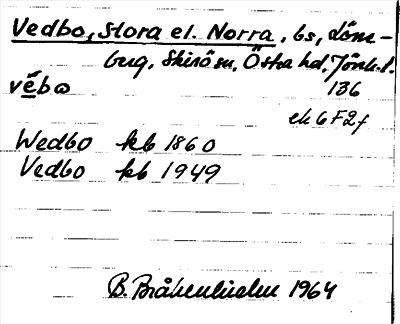 Vedbo, Stora el. Norra, bs, löm-
bug, Skirö sn, Östra hd, Jönk. l.
vébo 136
ek 6F2f
Wedbo kb 1860
Vedbo kb 1949
B. Bråkenhielm 1964